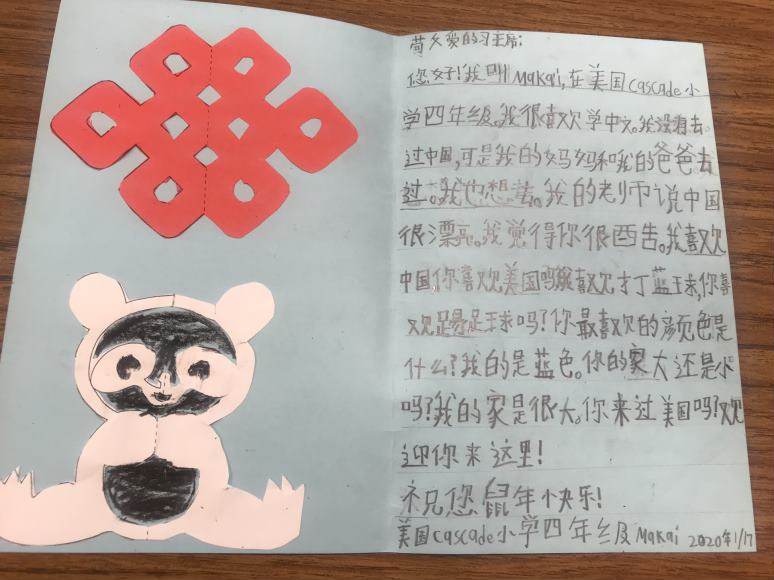 敬爱的习主席:
您好!我叫Makai,在美国Cascade小
学四年级。我很喜欢学中文。我没有去
过中国,可是我的妈妈和哦我的爸爸去
过。我也想去。我的老师说中国
很漂亮。我觉得你很酷。我喜欢
中国,你喜欢美国吗?我喜欢打蓝球,你喜
欢踢足球吗?你最喜欢的颜色是
什么?我的是蓝色。你的家大还是小
吗?我的家是很大。你来过美国吗?欢
迎你来这里!
祝您鼠年快乐!
美国Cascade小学四年级 Makai 2020年1/17